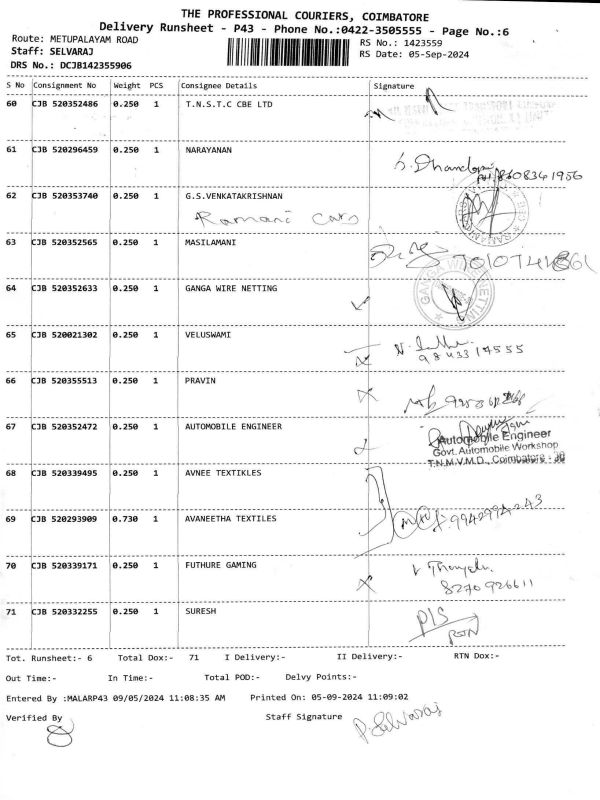 THE PROFESSIONAL COURIERS, COIMBATORE
Delivery Runsheet - P43 - Phone No.:0422-3505555 - Page No.:6
Route: METUPALAYAM ROAD
RS No.: 1423559
Staff: SELVARAJ
RS Date: 05-Sep-2024
DRS No.: DCJB142355906
S No Consignment No Weight PCS Consignee Details Signature
60 CJB 520352486 0.250 1 T.N.S.T.C CBE LTD
61 CJB 520296459 0.250 1 NARAYANAN
62 CJB 520353740 0.250 1 G.S.VENKATAKRISHNAN
Ramani Cars
63 CJB 520352565 0.250 1 MASILAMANI
64 CJB 520352633 0.250 1 GANGA WIRE NETTING
GANGA WIRE NETTING
65 CJB 520021302 0.250 1 VELUSWAMI
9843314555
66 CJB 520355513 0.250 1 PRAVIN
67 CJB 520352472 0.250 1 AUTOMOBILE ENGINEER
Automobile Engineer
Govt. Automobile Workshop
T.N.M.V.M.D., Coimbatore - 30
68 CJB 520339495 0.250 1 AVNEE TEXTIKLES
69 CJB 520293909 0.730 1 AVANEETHA TEXTILES
9942994243
70 CJB 520339171 0.250 1 FUTHURE GAMING
8270926611
71 CJB 520332255 0.250 1 SURESH
P/S
RTN
Tot. Runsheet:- 6 Total Dox:- 71 I Delivery:- II Delivery:- RTN Dox:-
Out Time:- In Time:- Total POD:- Delvy Points:-
Entered By :MALARP43 09/05/2024 11:08:35 AM Printed On: 05-09-2024 11:09:02
Verified By Staff Signature P. Selvaraj